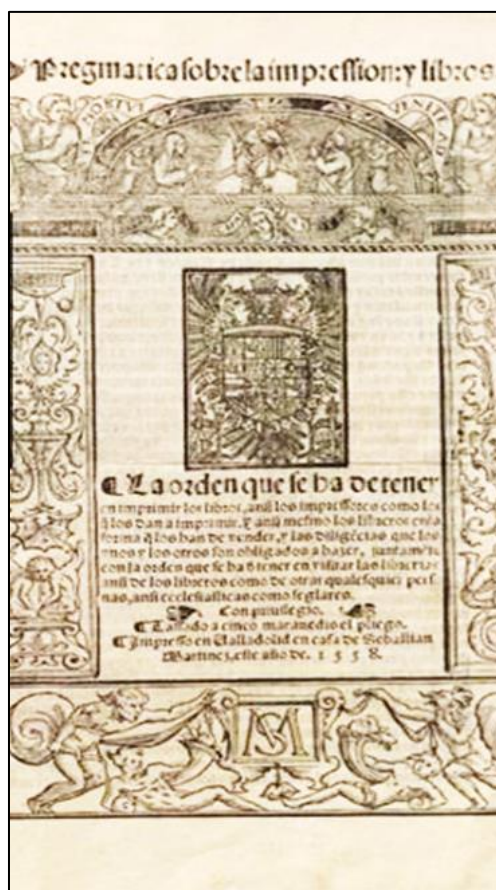 Pregmatica sobre la impression: y libros
VENITE AD
¶ La orden que se ha de tener
en imprimir los libros, ansi los impressores como los
q̃ los dan a imprimir. Y ansi mesmo los libreros en la
forma q̃ los han de vender, y las diligẽcias que los
vnos y los otros son obligados a hazer, juntamẽte
con la orden que se ha d̃ tener en visitar las librerias
ansi de los libreros como de otras qualesquier perso
nas, ansi ecclesiasticas como seglares.
Con priuilegio.
¶ Tassado a cinco marauedis el pliego.
¶ Impresso en Valladolid en casa de Sebastian
Martinez, este año de. 1 5 5 8.
SM